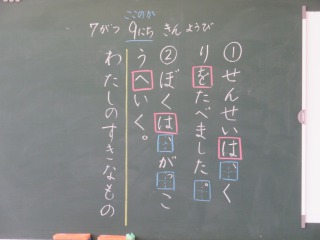 ここのか
7がつ 9にち きんようび
①せんせいは、く
りをたべました。
②ぼくは、がっこ
うへいく。
わたしのすきなもの